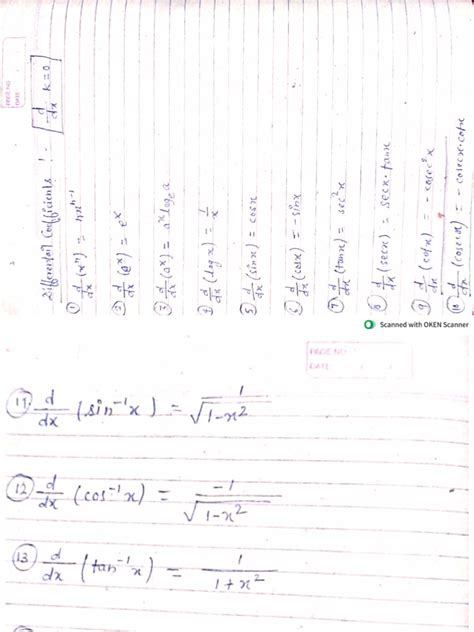 PAGE NO.
DATE
Differential Coefficients :- d/dx k = 0
① d/dx (xⁿ) = nxⁿ⁻¹
② d/dx (eˣ) = eˣ
③ d/dx (aˣ) = aˣ logₑ a
4 d/dx (log x) = 1/x
5 d/dx (sin x) = cos x
6 d/dx (cos x) = - sin x
⑦ d/dx (tan x) = sec² x
8 d/dx (sec x) = sec x · tan x
9 d/dx (cot x) = - cosec² x
⑩ d/dx (cosec x) = - cosec x · cot x
Scanned with OKEN Scanner
PAGE NO.
DATE
⑪ d/dx (sin⁻¹ x) = 1/√(1-x²)
⑫ d/dx (cos⁻¹ x) = -1/√(1-x²)
⑬ d/dx (tan⁻¹ x) = 1/(1+x²)